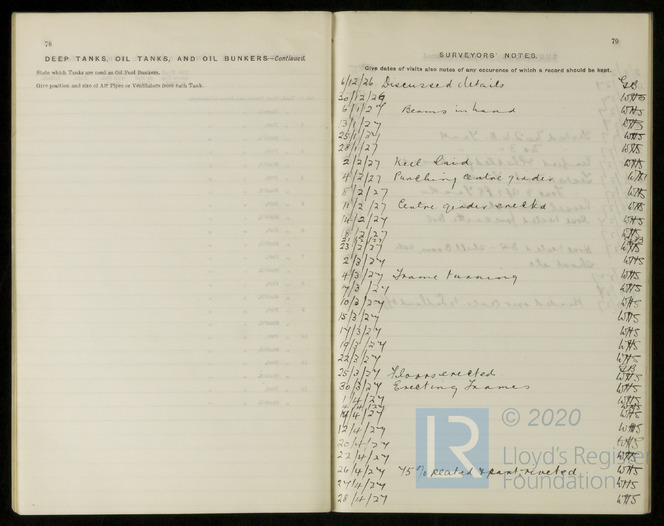 78
DEEP TANKS, OIL TANKS, AND OIL BUNKERS—Continued.
State which Tanks are used as Oil Fuel Bunkers.
Give position and size of Air Pipes or Ventilators from each Tank.
79
SURVEYORS' NOTES.
Give dates of visits also notes of any occurence of which a record should be kept.
6/12/26 Discussed details
30/12/26 WHS
6/1/27 Beams in hand WHS
13/1/27 WHS
25/1/27 WHS
28/1/27 WHS
2/2/27 Keel laid WHS
4/2/27 Punching centre girder WHS
8/2/27 WHS
11/2/27 Centre girder erected WHS
14/2/27 WHS
18/2/27 WHS
23/2/27 WHS
2/3/27 WHS
4/3/27 Frame turning WHS
7/3/27 WHS
10/3/27 WHS
15/3/27 WHS
17/3/27 WHS
19/3/27 WHS
22/3/27 WHS
25/3/27 Floors erected WHS
30/3/27 Erecting Frames WHS
1/4/27 WHS
12/4/27 WHS
20/4/27 WHS
22/4/27 WHS
26/4/27 75% plated & part riveted WHS
27/4/27 WHS
28/4/27 WHS
LR
© 2020
Lloyd's Register
Foundation